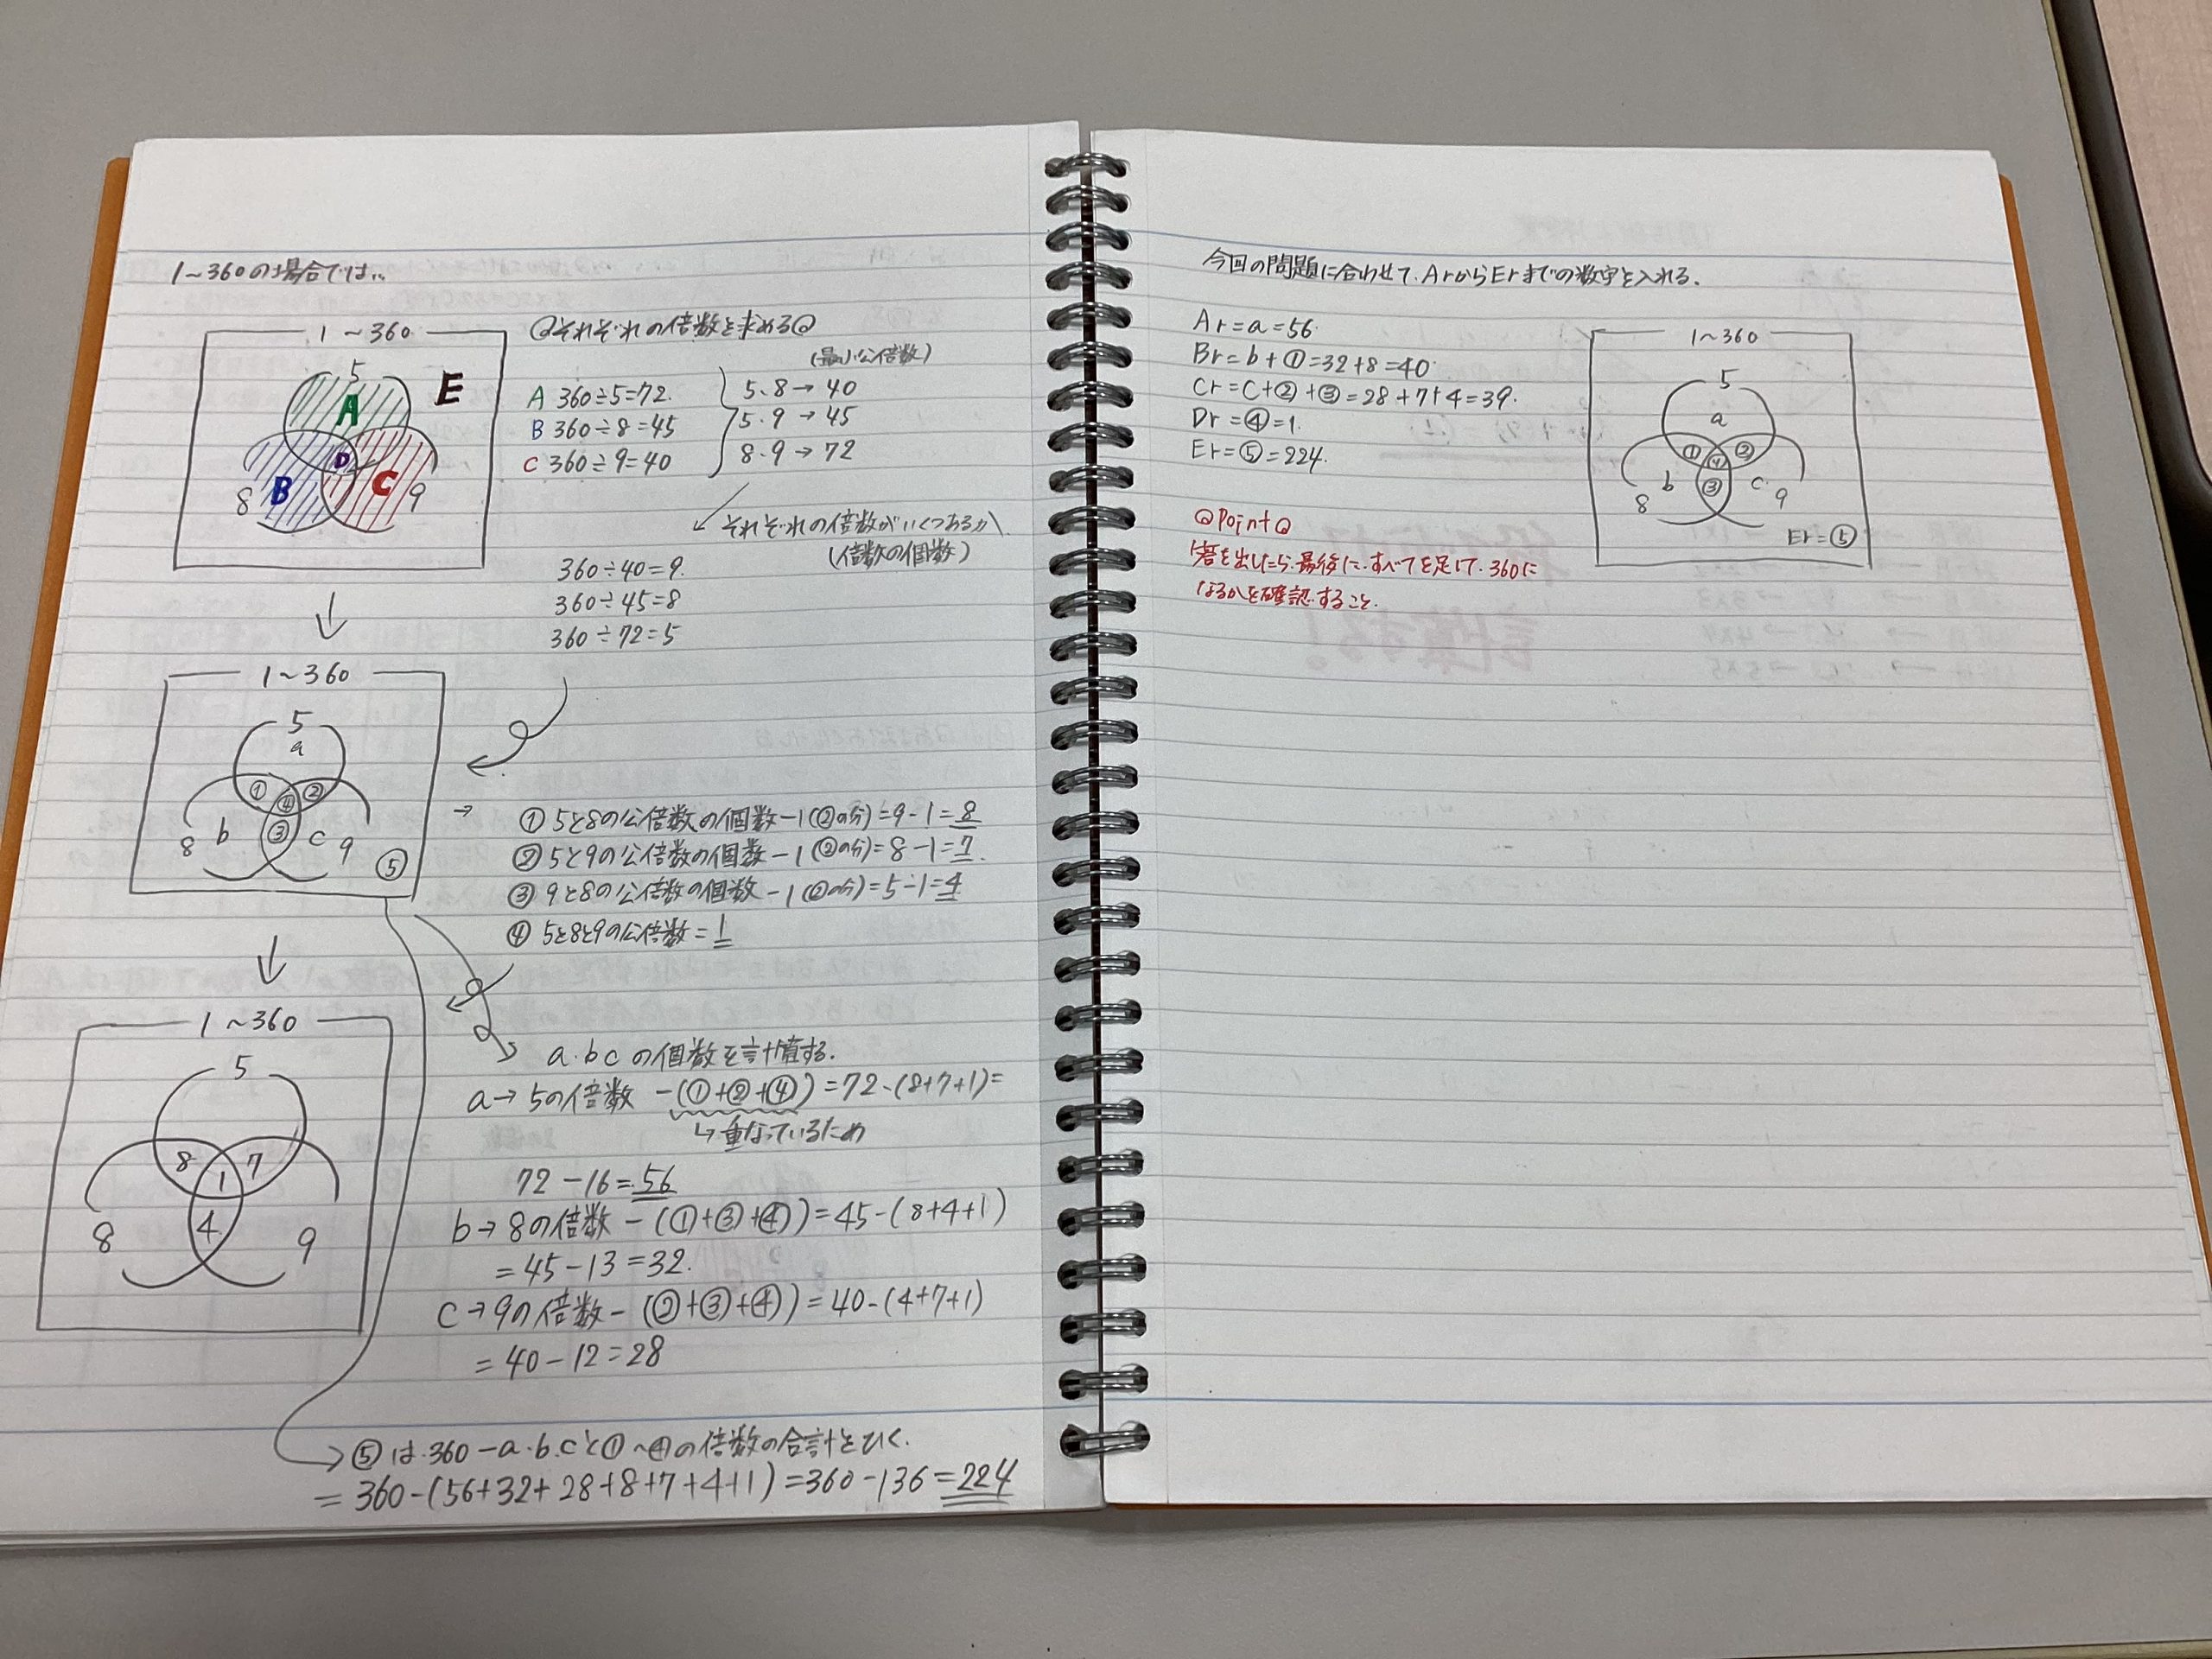 1~360の場合では...
1~360
5
A
E
B
D
C
8
9
それぞれの倍数を求める
(最小公倍数)
A 360÷5=72.
B 360÷8=45
C 360÷9=40
5.8→40
5.9→45
8.9→72
それぞれの倍数がいくつあるか
(倍数の個数)
360÷40=9.
360÷45=8
360÷72=5
1~360
5
a
① ④ ②
8 b ③ c 9
⑤
→ ① 5と8の公倍数の個数-1(②の分)=9-1=8
② 5と9の公倍数の個数-1(②の分)=8-1=7.
③ 9と8の公倍数の個数-1(②の分)=5-1=4
④ 5と8と9の公倍数=1
1~360
5
8 7
1
8 4 9
a.bcの個数を計算する.
a→5の倍数 -(①+②+④)=72-(8+7+1)=
↳重なっているため
72-16=56
b→8の倍数-(①+③+④)=45-(8+4+1)
=45-13=32.
c→9の倍数-(②+③+④)=40-(4+7+1)
=40-12=28
→⑤は.360-a.b.cと①~④の倍数の合計をひく.
=360-(56+32+28+8+7+4+1)=360-136=224
今回の問題に合わせて.ArからErまでの数字を入れる.
Ar=a=56.
Br=b+①=32+8=40.
Cr=C+②+③=28+7+4=39.
Dr=④=1.
Er=⑤=224.
1~360
5
a
① ④ ②
b ③ c.
8 9
Er=⑤
Point
答を出したら.最後に.すべてを足して.360に
なるかを確認.すること.